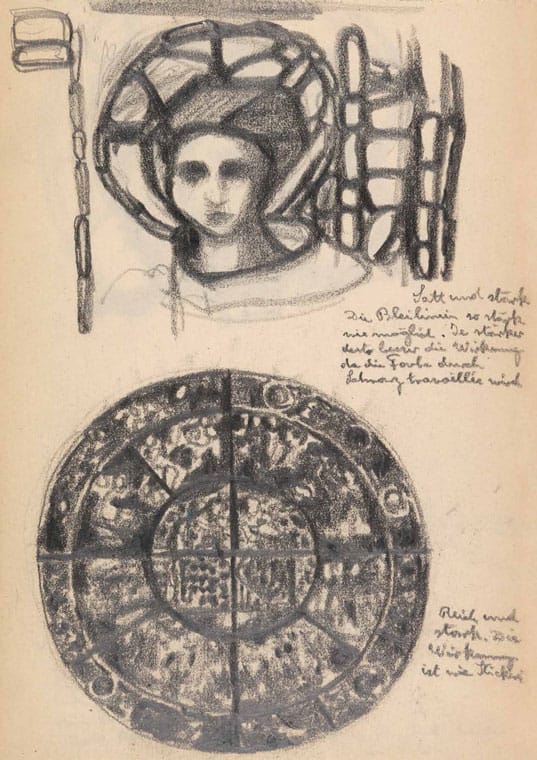 Satt und stark
Die Bleilinien so stark
wie möglich. Je stärker
desto besser die Wirkung
da die Farbe durch
Schwarz travaillée wird
Reich und
stark. Die
Wirkung
ist wie